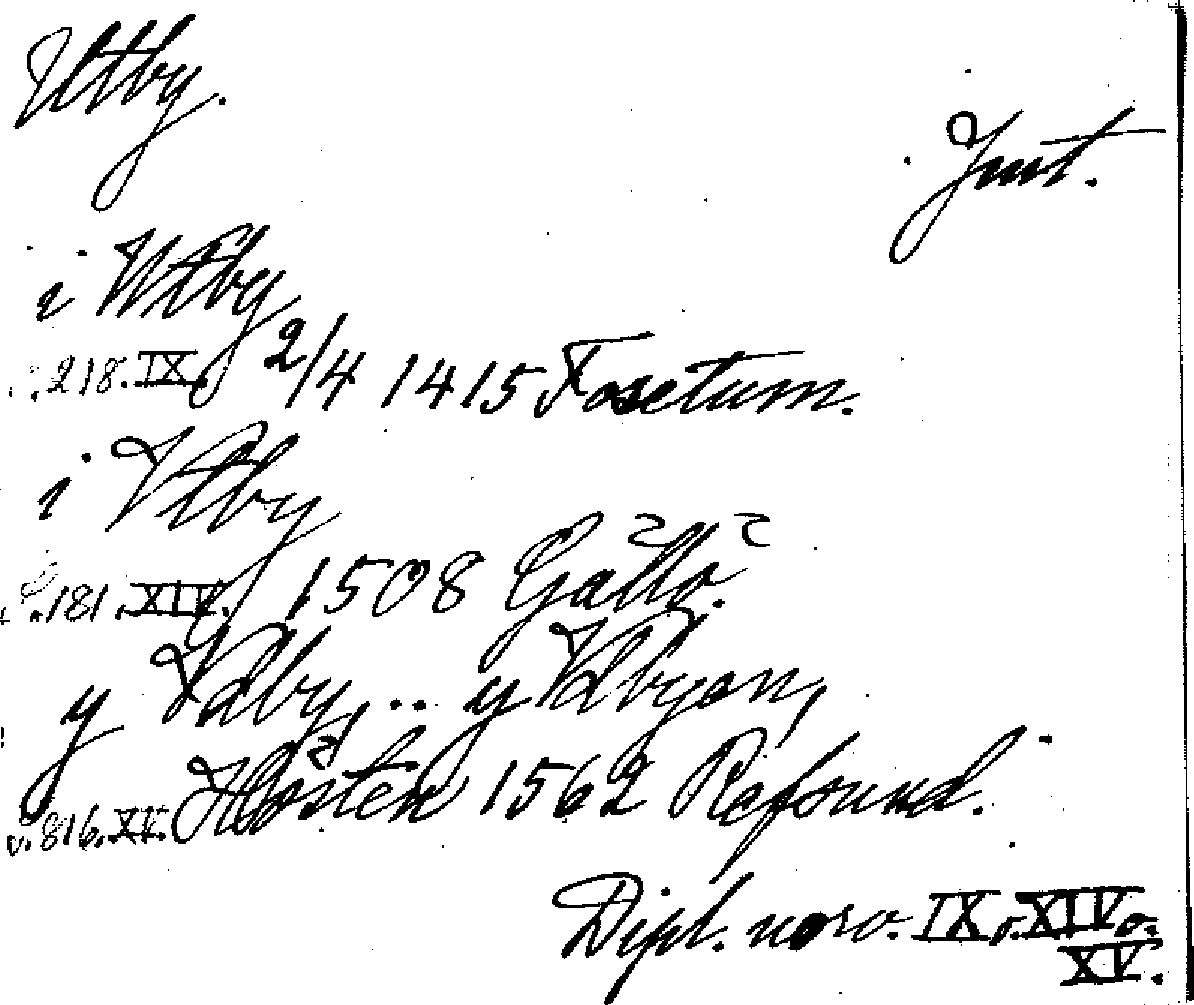 Utby.
Jmt.
i Wtby
s. 218. IX. 2/4 1415 Fosetum.
i Vtby
s. 181. XIV. 1508 Gållö.
y Vdby, .. y Vdbyen,
s. 816. XV. Hösten 1562 Refsund.
Dipl. norv. IX o. XIV o.
XV.